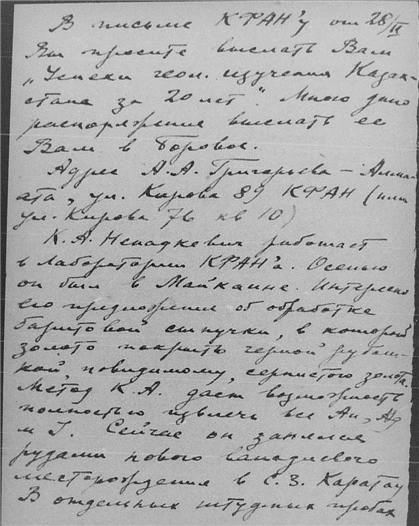 В письме КФАН'у от 28/IX
Вы просите выслать Вам
„Успехи геол. изучения Казах-
стана за 20 лет“. Мною дано
распоряжение выслать ее
Вам в Боровое.
Адрес А.А. Григорьева – Алма-
ата, ул. Кирова 89 КФАН (или
ул. Кирова 76 кв 10)
К.А. Ненадкевич работает
в лаборатории КФАН'а. Осенью
он был в Майкаине. Интересно
его предложение об обработке
баритовой сыпучки, в которой
золото покрыто черной рубаш-
кой, повидимому, сернистого золота.
Метод К.А. дает возможность
полностью извлечь все Au, Ag
и Сейчас он занялся
рудами нового ванадиевого
месторождения в С.З. Каратау
В отдельных штуфных пробах